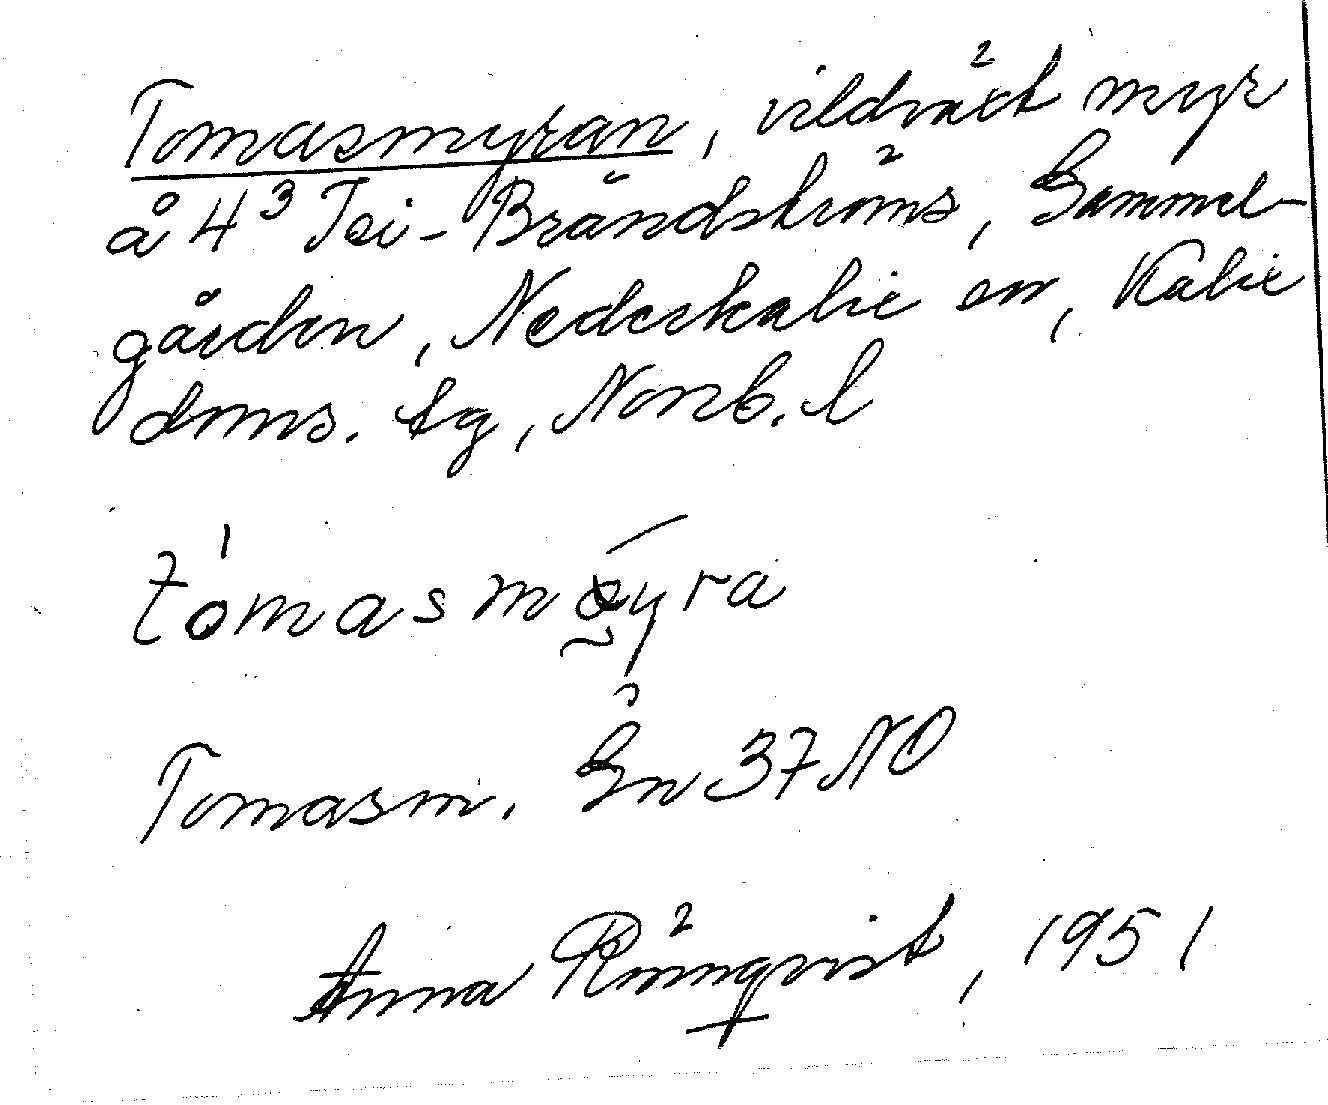 Tomasmyran, vildväxt myr
å 4³ Tei-Brändströms, Gammel-
gården, Nederkalix sn, Kalix
doms. tg, Norrb. l
tómasmǿyra
Tomasm. Gn 37 NO
Anna Rönnqvist, 1951